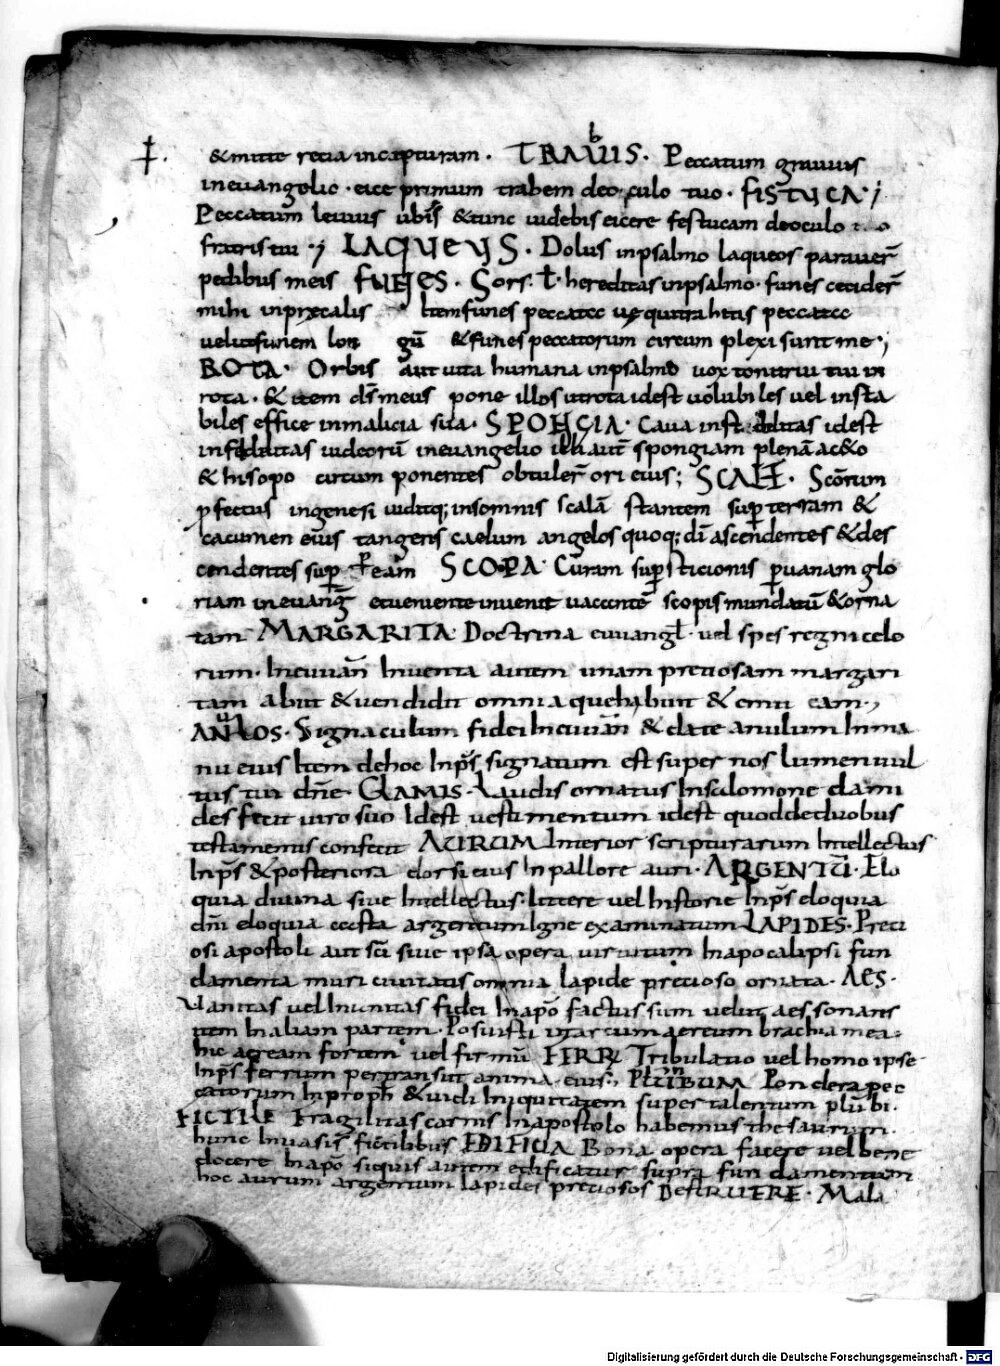 & mitte recia incapturam. TRAUIS. Peccatum grauius
b
inevangelio. eice primum trabem deoculo tuo. FISTUCA.;
Peccatum leuius ubi s̄ &tunc uidebis eicere festucam deoculo
fratris tui.; LAQUEUS. Dolus inpsalmo laqueos parauer̄
pedibus meis FUNES. Sors. ł. hereditas inpsalmo. funes cecider̄
mihi inpręcalis Item funes peccator̄ peccator̄
uelut funem lon gū &funes peccatorum circum plexi sunt me.;
ROTA. Orbis aut uita humana inpsalmo uox tonitrui tui in
rota. & item ds̄ meus pone illos utrota idest uolubiles uel insta
biles effice inmalicia sua. SPONGIA. Caua idest
infidelitas iudeorū ineuangelio illi autē spongiam plenā ac&o
& hisopo circum ponentes obtuler̄ ori eius; SCALE. Scōrum
ꝑfectus ingenesi uiditq; insomnis scalā stantem sup̱ terram &
cacumen eius tangens caelum angelos quoq; dī ascendentes &des
cendentes sup̱ eam SCOPA. Curam sup̱sticionis ꝑuanam glo
riam ineuanḡ etueniente inuenit uaccantē scopis mundatū &orna
tam MARGARITA Doctrina euuangł. uel spes regni celo
rum. Ineuuan̄ Inuenta autem unam preciosam margari
tam abiit &uendidit omnia quehabuit & emit eam.,
ANULOS. Signaculum fidei Ineuuan̄ & date anulum Inma
nu eius Item dehoc Inps̄ signatum est super nos lumen uul
tus tui dn̄e. CLAMIS. Laudis ornatus Insalomone clami
des fecit uiro suo Idest uestimentum idest quoddeduobus
testamentis confecit AURUM Interior scripturarum Intellectus
Inps̄ &posteriora dorsi eius In pallore auri. ARGENTŪ. Elo
quia diuina siue Intellectus littere uel historie Inps̄ eloquia
dn̄i eloquia casta argentum Igne examinatum LAPIDES. Preci
osi apostoli aut sc̄i siue ipsa opera uirtutum Inapocalipsi fun
damenta muri ciuitatis omnia lapide precioso ornata. AES.
Uanitas uel Inanitas fidei Inapō factus sum uelut aes sonans
item Inaliam partem. Posuisti ut arcum aereum brachia mea.
hic aeream fortem uel firmū FERR̄ Tribulatio uel homo ipse
Inps̄ ferrum pertransiit anima eius. PLUMBUM Pondera pec
catorum Inproph̄ &uidi Iniquitatem super talentum plūbi.
FICTILE Fragilitas carnis Inapostolo habemus thesaurum.
hunc Inuasis fictilibus EDIFICIA Bona opera facere uel bene
docere Inapō siquis autem edificatur supra fundamentum
hoc aurum argentum lapides preciosos DESTRUERE. Mala
Digitalisierung gefördert durch die Deutsche Forschungsgemeinschaft - DFG